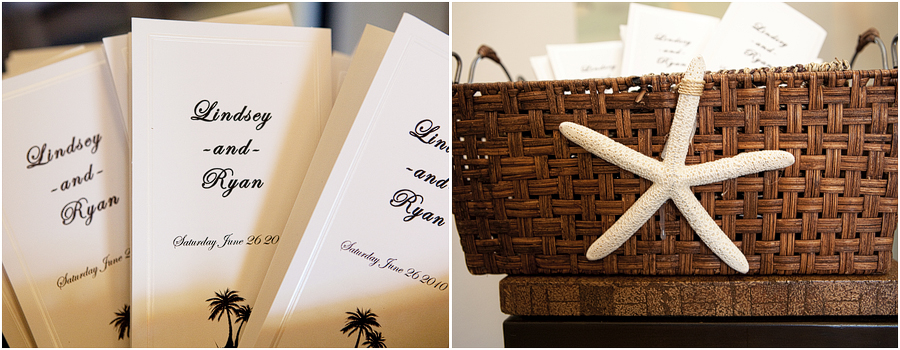 Lindsey
-and-
Ryan
Saturday June 2
Lindsey
-and-
Ryan
Saturday June 26 20
Lin
-and
Ryan
Saturday June 26 2010
Lindsey
-and-
Ryan
Lindsey
-and-
Ryan